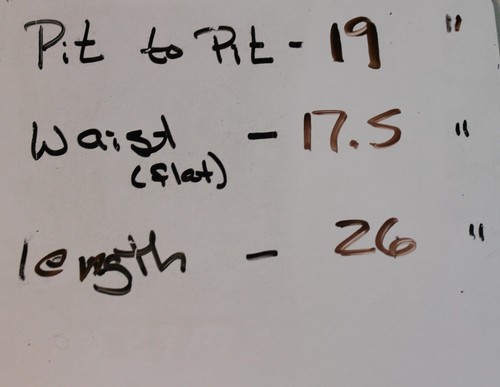 Pit to Pit - 19 "
Waist - 17.5 "
(flat)
length - 26 "